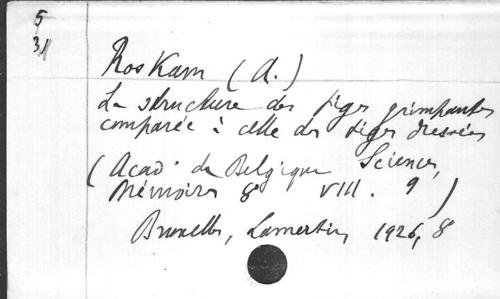 5
31
Roskam (A.)
La structure des tiges grimpantes
comparée à celle des tiges dressées
(Acad. de Belgique Sciences,
Mémoires 8 VIII. 9)
Bruxelles, Lamertin, 1926, 8